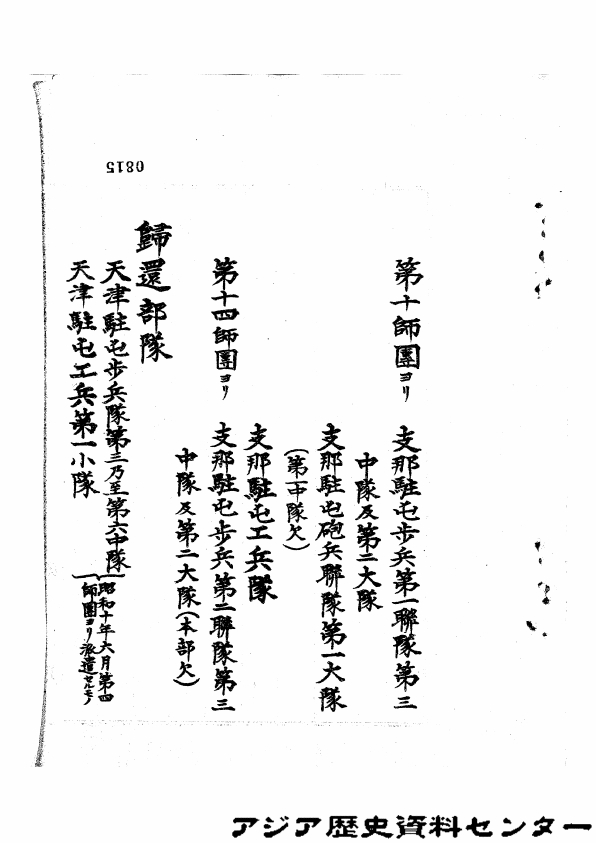 0815
第十師團ヨリ 支那駐屯步兵第一聯隊第三
中隊及第二大隊
支那駐屯砲兵聯隊第一大隊
(第一中隊欠)
支那駐屯工兵隊
第十四師團ヨリ 支那駐屯步兵第二聯隊第三
中隊及第二大隊(本部欠)
歸還部隊
天津駐屯步兵隊第三乃至第六中隊
天津駐屯工兵第一小隊
昭和十年六月第四
師團ヨリ派遣セルモノ
アジア歴史資料センター